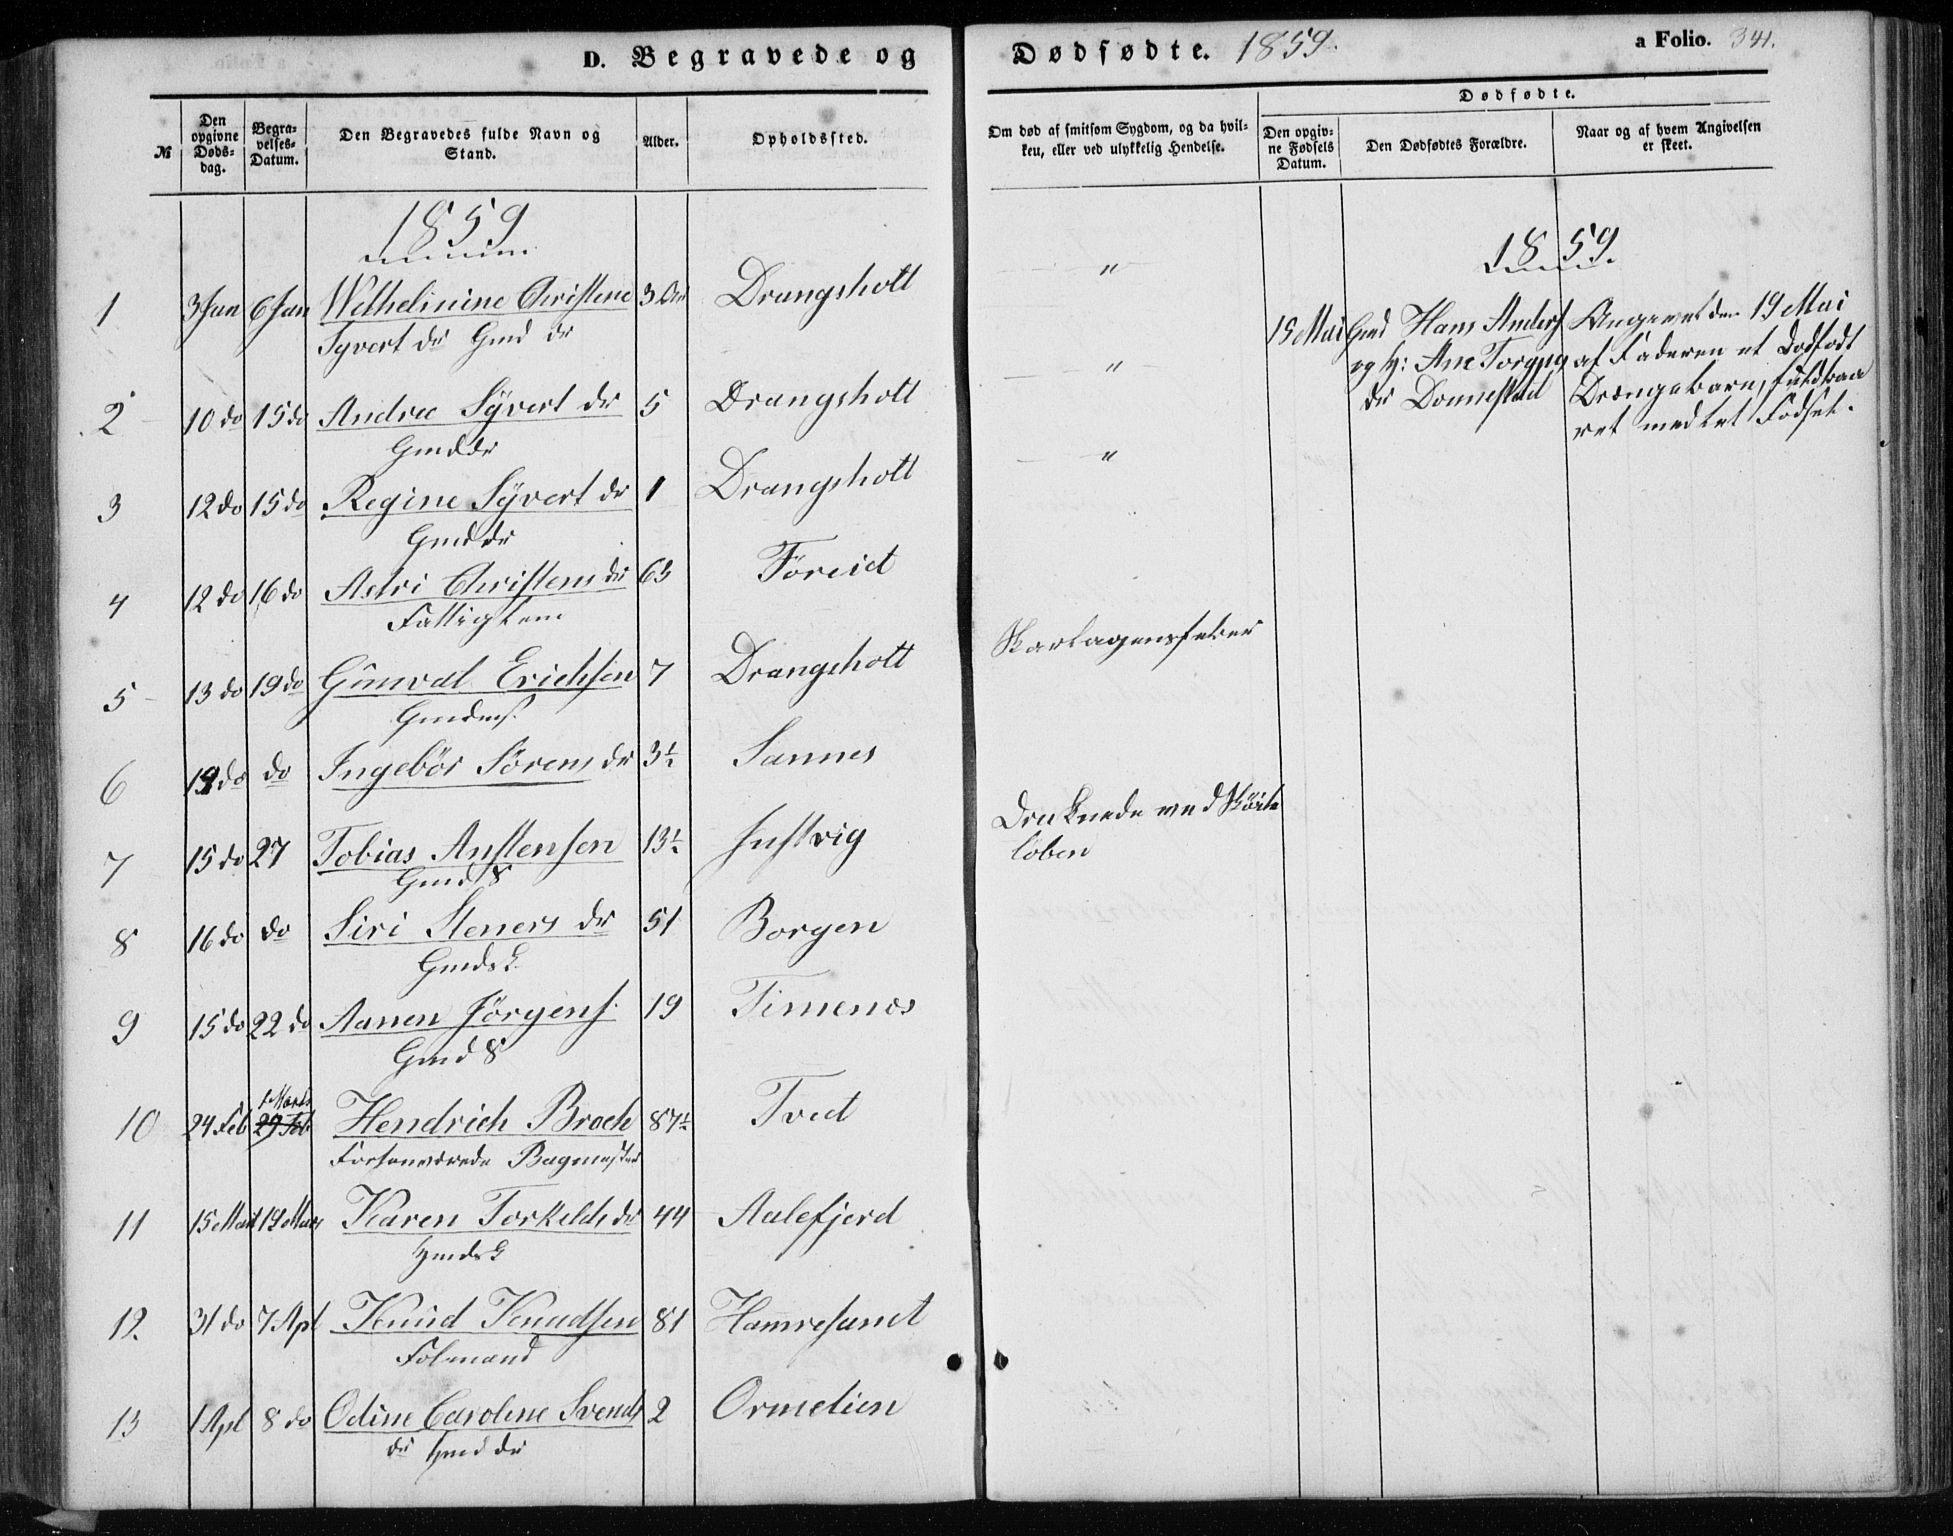 D. Begravede og Dødfødte. 1859. a Folio. 341.
№
Den opgivne Døds-dag.
Begra-velses-Datum.
Den Begravedes fulde Navn og Stand.
Alder.
Opholdssted.
Om død af smitsom Sygdom, og da hvil-ken, eller ved ulykkelig Hendelse.
Dødfødte.
Den opgiv-ne Fødsels Datum.
Den Dødfødtes Forældre.
Naar og af hvem Angivelsen er skeet.
1859
1 3 Jan 6 Jan Wilhelmine Christene 3 Aar Drangsholt "
Syvert dr Gmd dr
2 10 do 15 do Andrea Syvert dr 5 Drangsholt "
Gmd dr
3 12 do 15 do Regine Syvert dr 1 Drangsholt "
Gmd dr
4 12 do 16 do Astri Christens dr 63 Föreid
Fattiglem
5 13 do 19 do Gunval Erichsen 7 Drangsholt Skarlagensfeber
Gmdms.
6 19 do do Ingebör Sörens dr 3½ Sannes
7 15 do 27 Tobias Anstensen 13½ Justvig Druknede ved Sköite
Gmd S löben
8 16 do do Siri Steners dr 51 Borgen
Gmds k
9 15 do 22 do Aanen Jörgens. 19 Timenes
Gmd S
1 Marts
10 24 Feb 29 Feb Hendrich Broch 87½ Tved
Bagmester
11 15 Mart 19 Mars Karen Torkelds dr 44 Aalefjerd
Hmds k
12 31 do 7 Apl Knud Knudsen 81 Hamresand
Folmand
13 1 Apl 8 do Odine Caroline Svends 2 Ormelien
dr Hmd dr
1859
15 Mai Gmd Hans Anders Angivet den 19 Mai
og H: Ane Torgus af Faderen et Dødfødt
dr Donnestad Drængebarn, fuldbaa
ret med let Födsel.